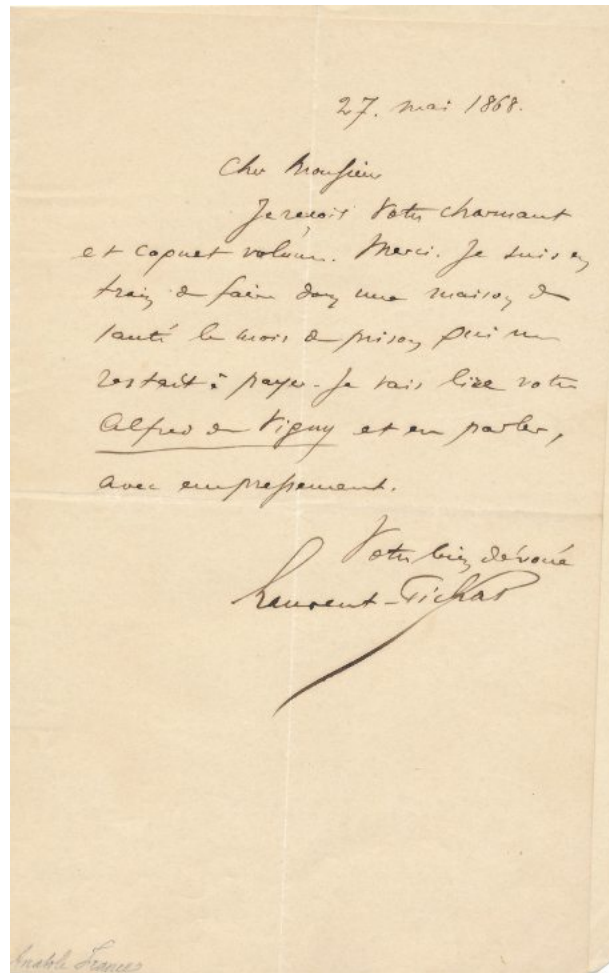 27. mai 1868.
Cher Monsieur
Je reçois Votre charmant
et coquet volume. Merci. Je suis en
train de faire dans une maison de
santé le mois de prison qui me
restait à payer. Je vais lire votre
Alfred de Vigny et en parler,
avec empressement.
Votre bien dévoué
Laurent-Pichat
Anatole France